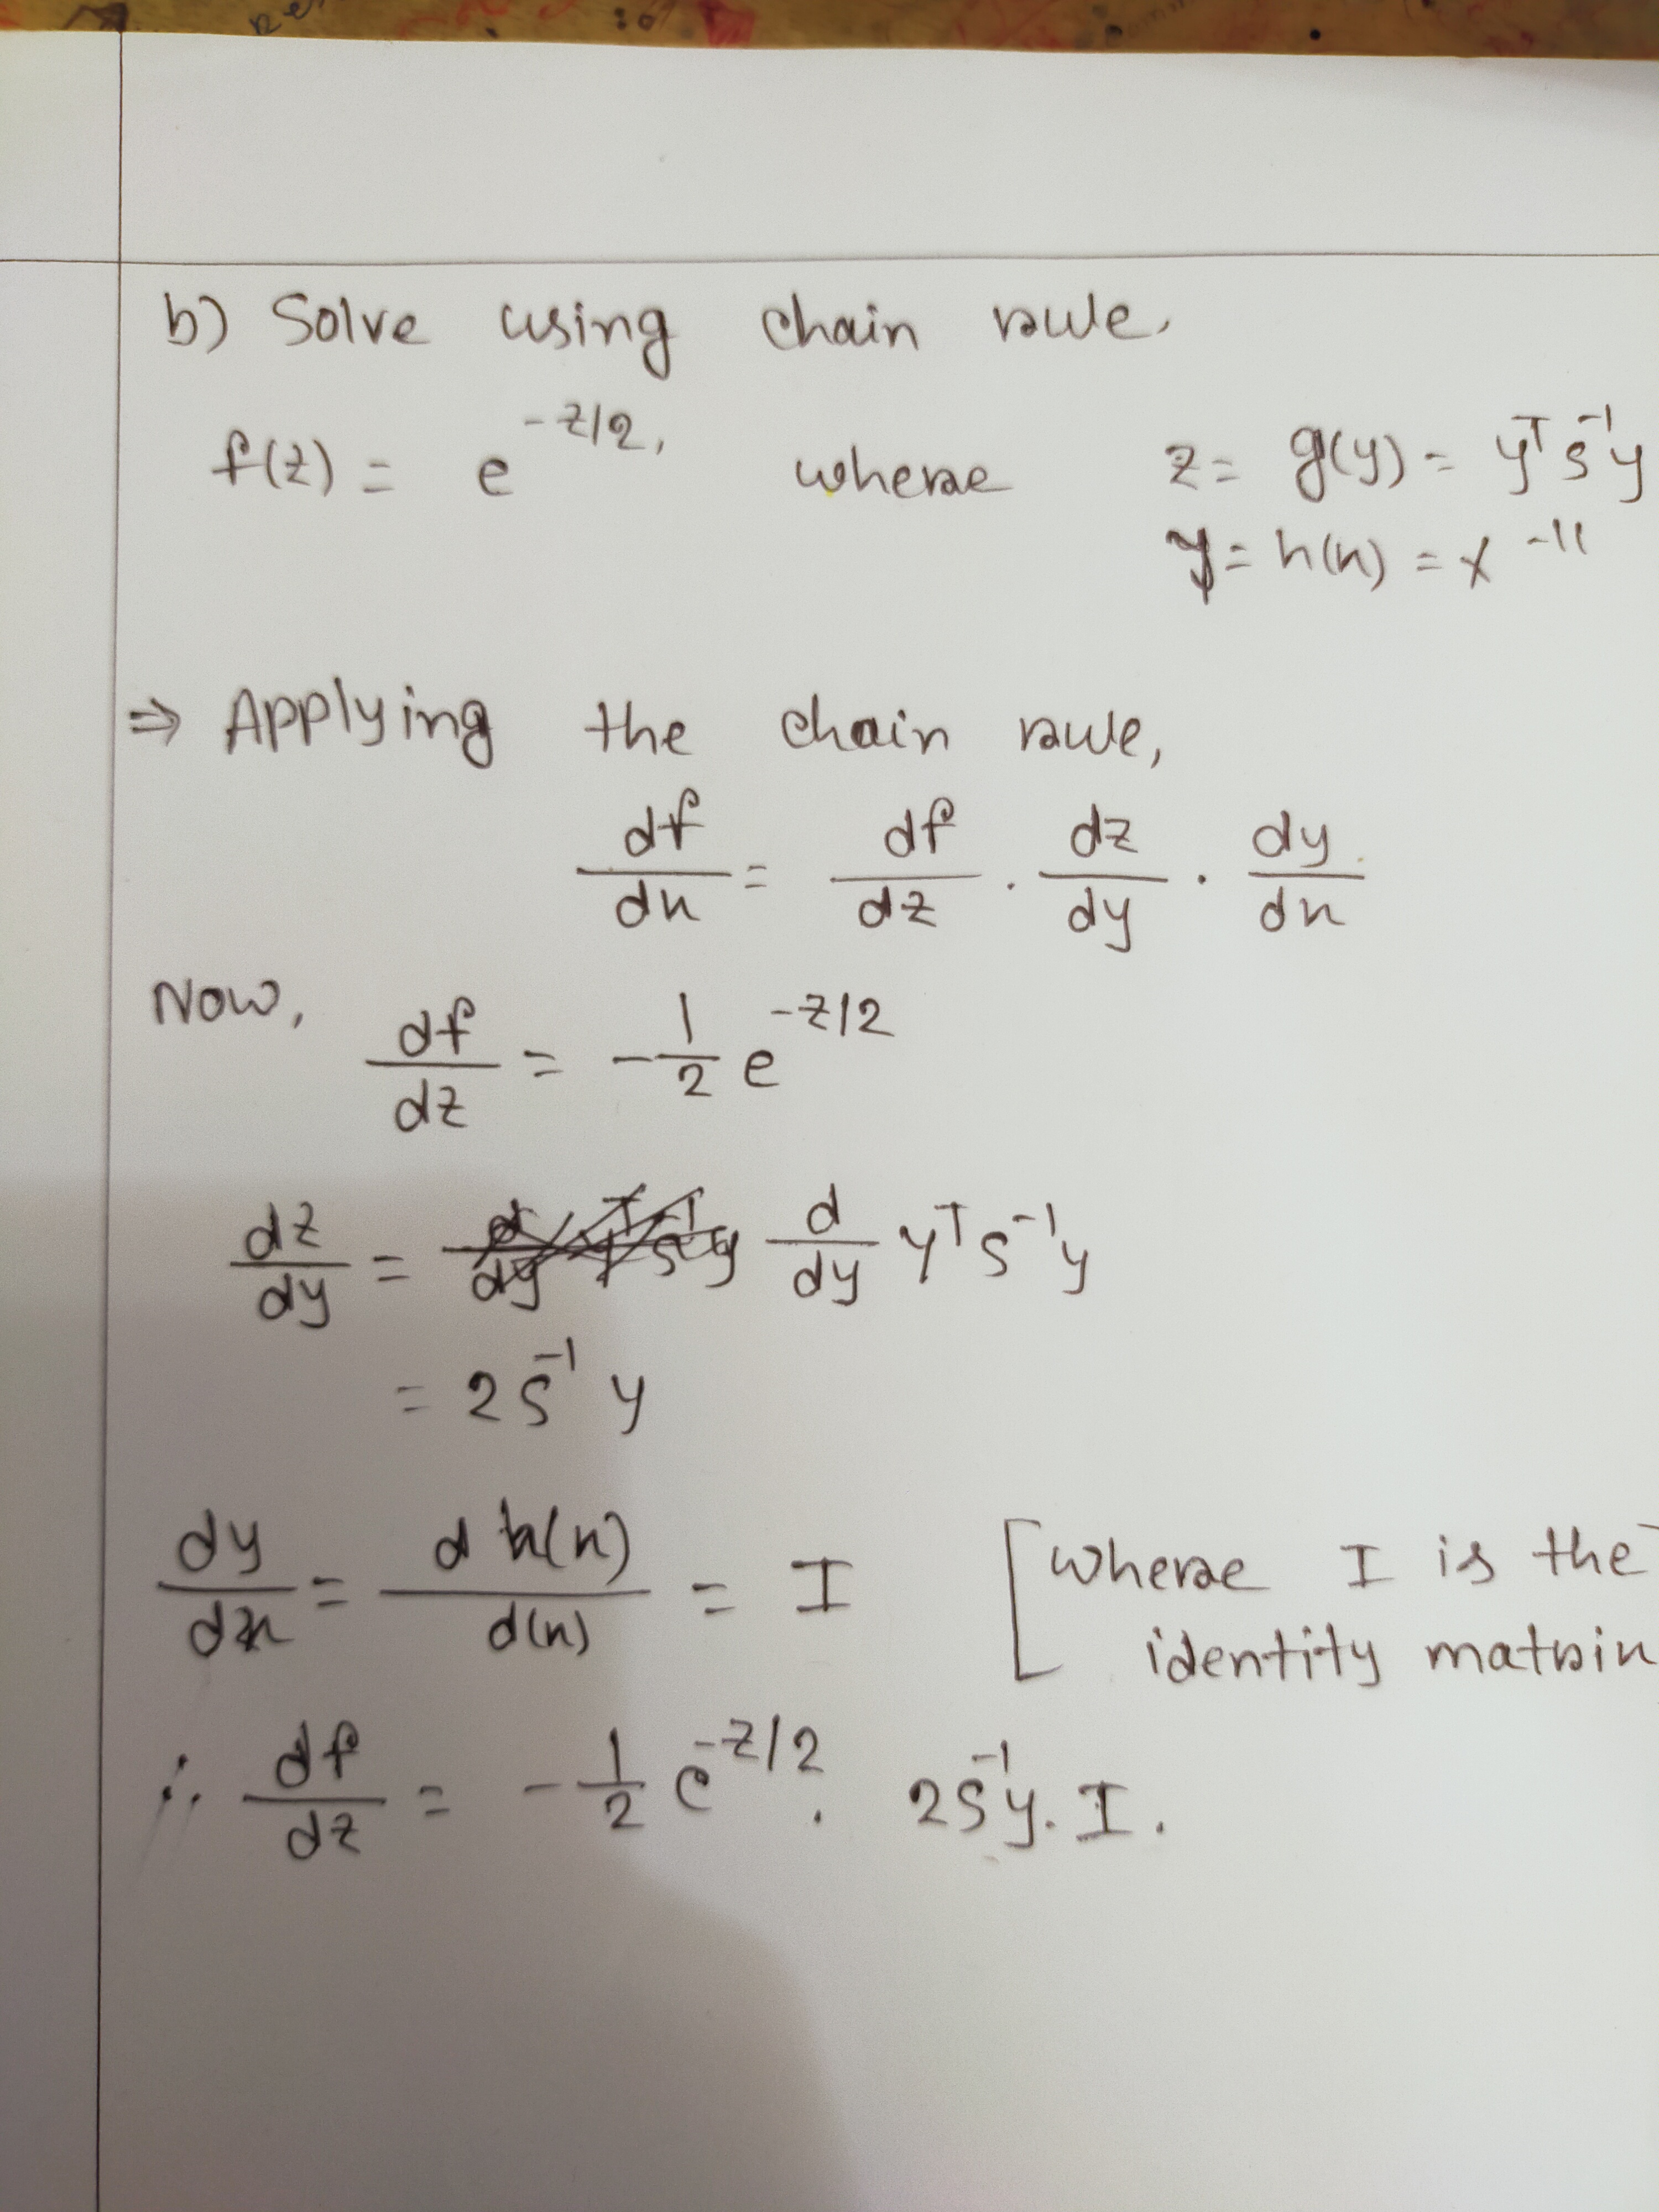 b) Solve using chain rule.
f(z) = e^{-z/2}, where z = g(y) = y^T S^{-1} y
y = h(x) = x - μ
⇒ Applying the chain rule,
df/dx = df/dz . dz/dy . dy/dx
Now, df/dz = -1/2 e^{-z/2}
dz/dy = d/dy y^T S^{-1} y
= 2 S^{-1} y
dy/dx = d h(x)/d(x) = I [where I is the
identity matrix
∴ df/dz = -1/2 e^{-z/2} . 2S^{-1}y. I.